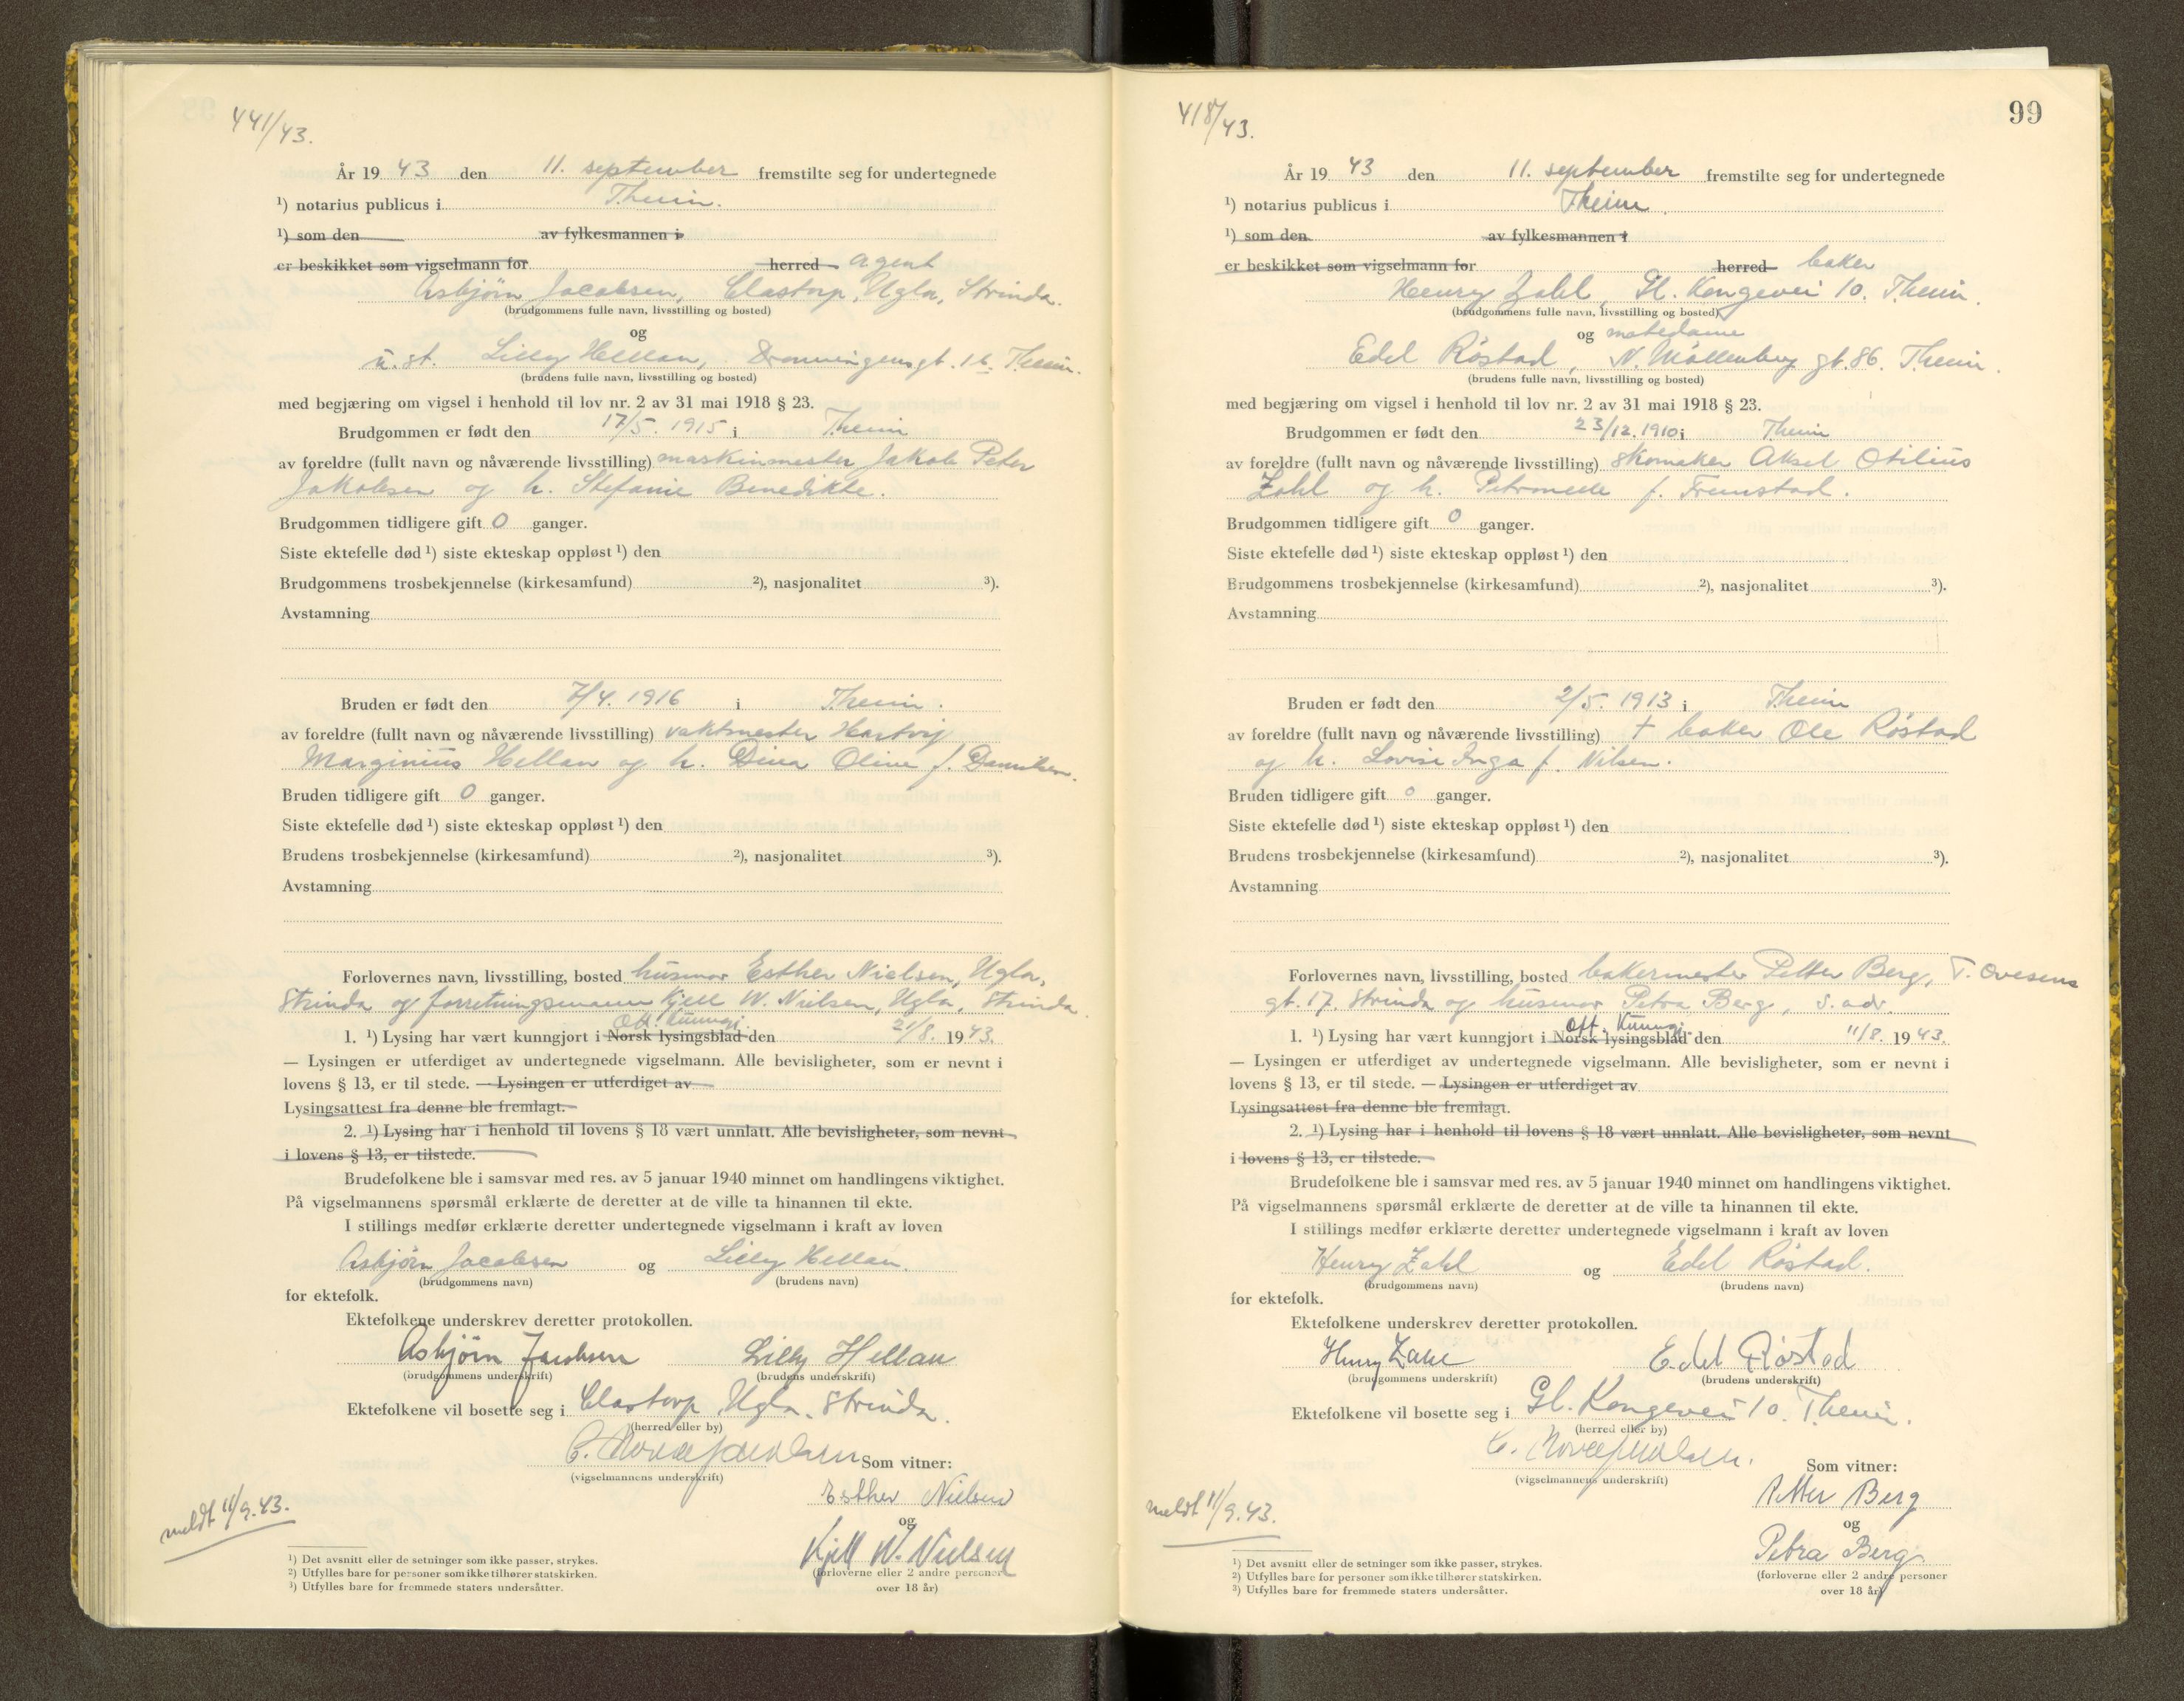 441/43.
År 19 43 den 11. september fremstilte seg for undertegnede
¹) notarius publicus i Theim.
¹) som den av fylkesmannen i
er beskikket som vigselmann for herred agent
Asbjørn Jacobsen, Clastorp, Ugla, Strinda.
(brudgommens fulle navn, livsstilling og bosted)
og
u. st. Lilly Hellan, Dronningensgt. 1b. Theim.
(brudens fulle navn, livsstilling og bosted)
med begjæring om vigsel i henhold til lov nr. 2 av 31 mai 1918 § 23.
Brudgommen er født den 17/5. 1915 i Theim
av foreldre (fullt navn og nåværende livsstilling) maskinmester Jakob Peter
Jakobsen og h. Stefanie Benedikte.
Brudgommen tidligere gift 0 ganger.
Siste ektefelle død ¹) siste ekteskap oppløst ¹) den
Brudgommens trosbekjennelse (kirkesamfund) ²), nasjonalitet ³).
Avstamning
Bruden er født den 7/4. 1916 i Theim.
av foreldre (fullt navn og nåværende livsstilling) vaktmester Hartvig
Marginius Hellan og h. Dina Oline f. Danielsen.
Bruden tidligere gift 0 ganger.
Siste ektefelle død ¹) siste ekteskap oppløst ¹) den
Brudens trosbekjennelse (kirkesamfund) ²), nasjonalitet ³).
Avstamning
Forlovernes navn, livsstilling, bosted husmor Esther Nielsen, Ugla,
Strinda og forretningsmann Kjell W. Nielsen, Ugla, Strinda.
Off. Kunngj.
1. ¹) Lysing har vært kunngjort i Norsk lysingsblad den 21/8. 1943.
— Lysingen er utferdiget av undertegnede vigselmann. Alle bevisligheter, som er nevnt i
lovens § 13, er til stede. — Lysingen er utferdiget av
Lysingsattest fra denne ble fremlagt.
2. ¹) Lysing har i henhold til lovens § 18 vært unnlatt. Alle bevisligheter, som nevnt
i lovens § 13, er tilstede.
Brudefolkene ble i samsvar med res. av 5 januar 1940 minnet om handlingens viktighet.
På vigselmannens spørsmål erklærte de deretter at de ville ta hinannen til ekte.
I stillings medfør erklærte deretter undertegnede vigselmann i kraft av loven
Asbjørn Jacobsen og Lilly Hellan.
(brudgommens navn) (brudens navn)
for ektefolk.
Ektefolkene underskrev deretter protokollen.
Asbjørn Jacobsen Lilly Hellan
(brudgommens underskrift) (brudens underskrift)
Ektefolkene vil bosette seg i Clastorp, Ugla, Strinda.
(herred eller by)
C. Som vitner:
(vigselmannens underskrift)
Esther Nielsen
og
Kjell W. Nielsen
(forloverne eller 2 andre personer
over 18 år)
meldt 11/9.43.
¹) Det avsnitt eller de setninger som ikke passer, strykes.
²) Utfylles bare for personer som ikke tilhører statskirken.
³) Utfylles bare for fremmede staters undersåtter.
418/43.
99
År 19 43 den 11. september fremstilte seg for undertegnede
¹) notarius publicus i Theim.
¹) som den av fylkesmannen i
er beskikket som vigselmann for herred baker
Henry Zahl, Gl. Kongevei 10. Theim.
(brudgommens fulle navn, livsstilling og bosted)
og motedame
Edel Röstad, N. Möllenberg gt. 86. Theim.
(brudens fulle navn, livsstilling og bosted)
med begjæring om vigsel i henhold til lov nr. 2 av 31 mai 1918 § 23.
Brudgommen er født den 23/12. 1910 i Theim
av foreldre (fullt navn og nåværende livsstilling) skomaker Aksel Otilius
Zahl og h. Petronelle f. Tremstad.
Brudgommen tidligere gift 0 ganger.
Siste ektefelle død ¹) siste ekteskap oppløst ¹) den
Brudgommens trosbekjennelse (kirkesamfund) ²), nasjonalitet ³).
Avstamning
Bruden er født den 2/5. 1913 i Theim
av foreldre (fullt navn og nåværende livsstilling) † baker Ole Röstad
og h. Lovise Inga f. Nilsen.
Bruden tidligere gift 0 ganger.
Siste ektefelle død ¹) siste ekteskap oppløst ¹) den
Brudens trosbekjennelse (kirkesamfund) ²), nasjonalitet ³).
Avstamning
Forlovernes navn, livsstilling, bosted bakermester Petter Berg, T. Ovesens
gt. 17. Strinda og husmor Petra Berg, s. adr.
Off. Kunngj.
1. ¹) Lysing har vært kunngjort i Norsk lysingsblad den 11/8. 1943.
— Lysingen er utferdiget av undertegnede vigselmann. Alle bevisligheter, som er nevnt i
lovens § 13, er til stede. — Lysingen er utferdiget av
Lysingsattest fra denne ble fremlagt.
2. ¹) Lysing har i henhold til lovens § 18 vært unnlatt. Alle bevisligheter, som nevnt
i lovens § 13, er tilstede.
Brudefolkene ble i samsvar med res. av 5 januar 1940 minnet om handlingens viktighet.
På vigselmannens spørsmål erklærte de deretter at de ville ta hinannen til ekte.
I stillings medfør erklærte deretter undertegnede vigselmann i kraft av loven
Henry Zahl og Edel Röstad.
(brudgommens navn) (brudens navn)
for ektefolk.
Ektefolkene underskrev deretter protokollen.
Henry Zahl Edel Röstad
(brudgommens underskrift) (brudens underskrift)
Ektefolkene vil bosette seg i Gl. Kongevei 10. Theim.
(herred eller by)
C. Som vitner:
(vigselmannens underskrift)
Petter Berg
og
Petra Berg
(forloverne eller 2 andre personer
over 18 år)
meldt 11/9.43.
¹) Det avsnitt eller de setninger som ikke passer, strykes.
²) Utfylles bare for personer som ikke tilhører statskirken.
³) Utfylles bare for fremmede staters undersåtter.